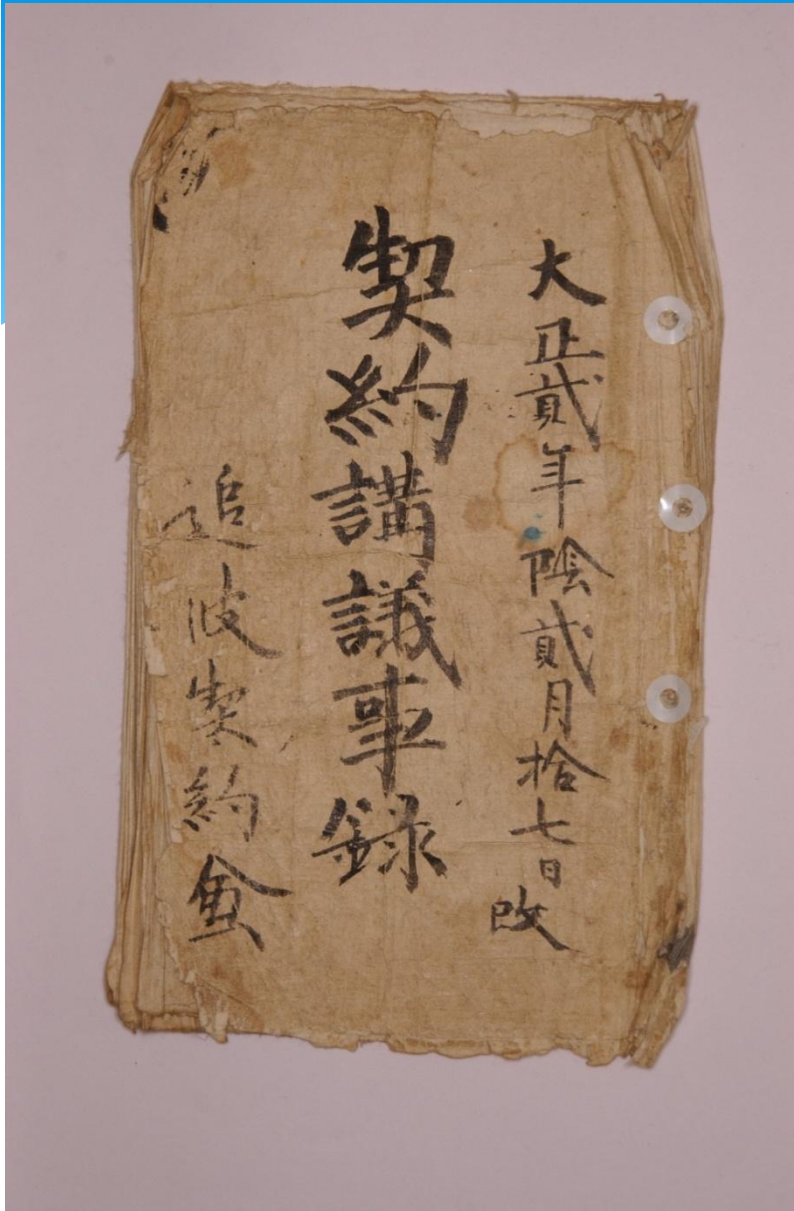 大正貳年陰貳月拾七日改
契約講議事録
追波契約會